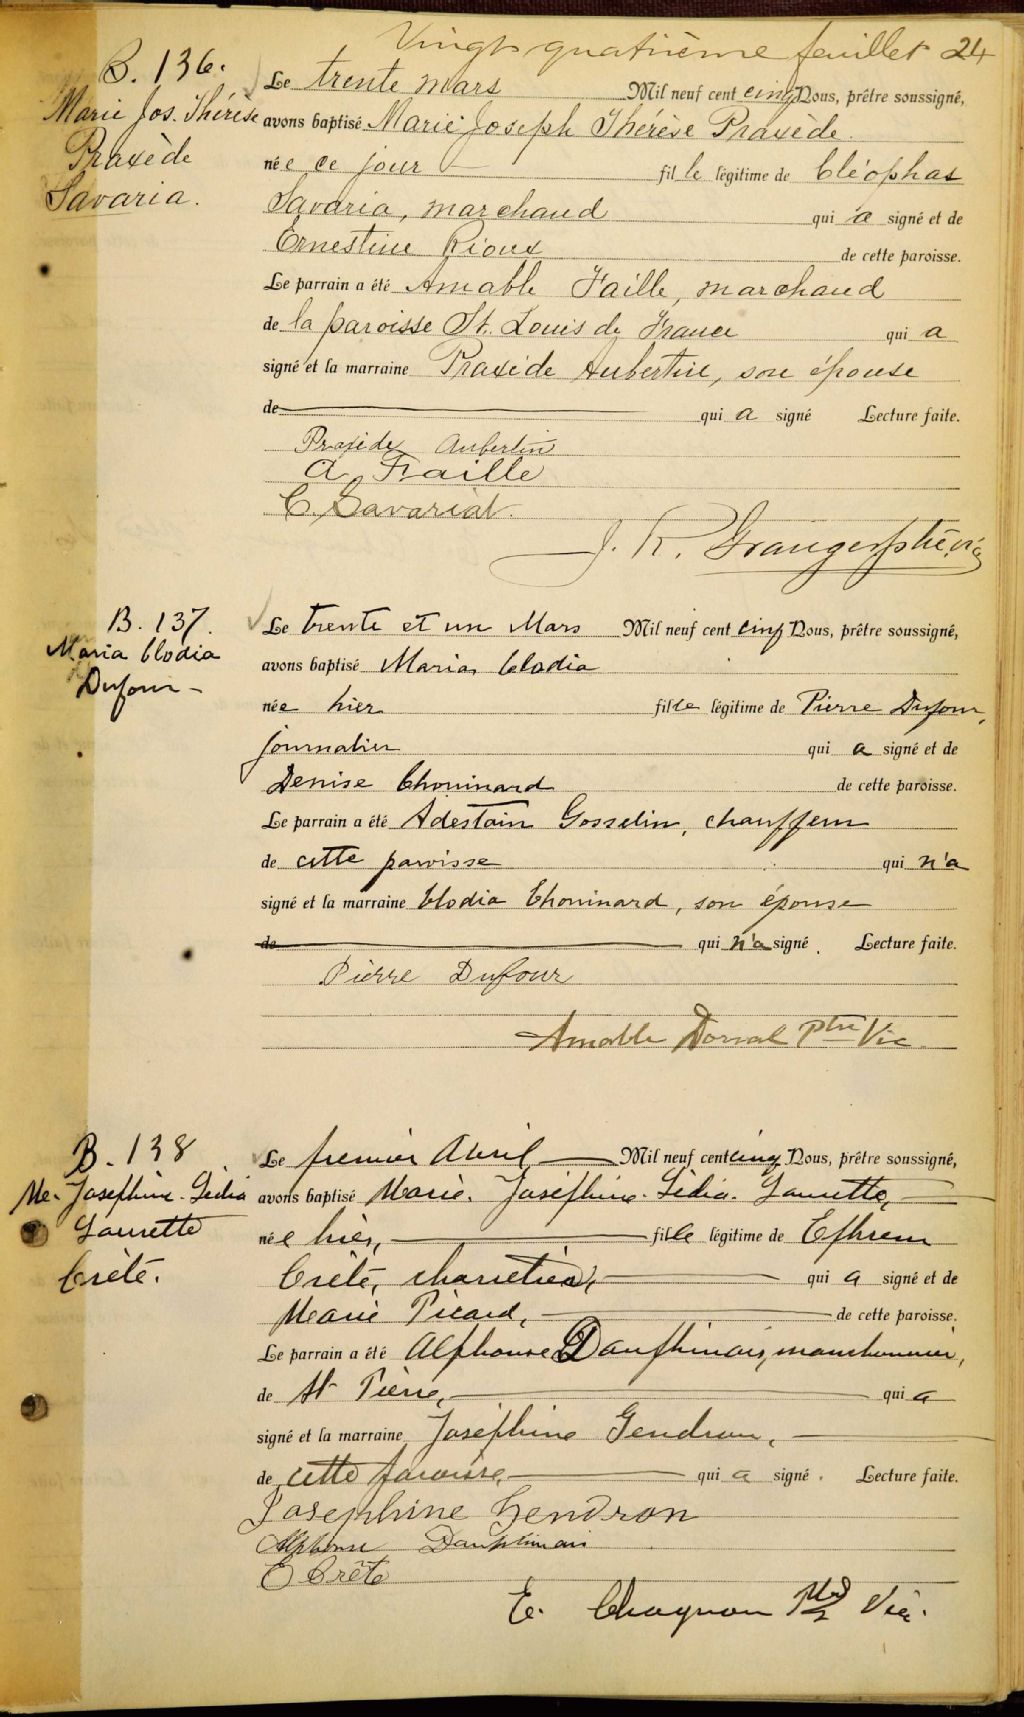 Vingt quatrième feuillet 24
B. 136.
Marie Jos. Thérèse
Praxède
Savaria.
Le trente mars Mil neuf cent cinq Nous, prêtre soussigné,
avons baptisé Marie Joseph Thérèse Praxède.
née ce jour fille légitime de Cléophas
Savaria, marchand qui a signé et de
Ernestine Rioux de cette paroisse.
Le parrain a été Amable Faille, marchand
de la paroisse St. Louis de France qui a
signé et la marraine Praxède Aubertin, son épouse
de qui a signé Lecture faite.
Praxède Aubertin
A Faille
C. Savariat.
J. R. Granger ptre. vic
B. 137.
Maria Clodia
Dufour -
Le trente et un Mars Mil neuf cent cinq Nous, prêtre soussigné,
avons baptisé Maria, Clodia
née hier fille légitime de Pierre Dufour,
journalier qui a signé et de
Denise Chouinard de cette paroisse.
Le parrain a été Adestain Gosselin, chauffeur
de cette paroisse qui n'a
signé et la marraine Clodia Chouinard, son épouse
de qui n'a signé. Lecture faite.
Pierre Dufour
Amable Dorval Ptre Vic.
B. 138
Me. Joséphine. Lidia
Laurette
Crêté.
Le premier Avril Mil neuf cent cinq Nous, prêtre soussigné,
avons baptisé Marie. Joséphine. Lidia. Laurette,
née hier, fille légitime de Ephrem
Crêté, charretier, qui a signé et de
Marie Picard, de cette paroisse.
Le parrain a été Alphonse Dauphinais,
de St Pierre, qui a
signé et la marraine Joséphine Gendron,
de cette paroisse, qui a signé. Lecture faite.
Josephine Gendron
Alphonse Dauphinais
E Crête
E. Chagnon Ptre Vic.